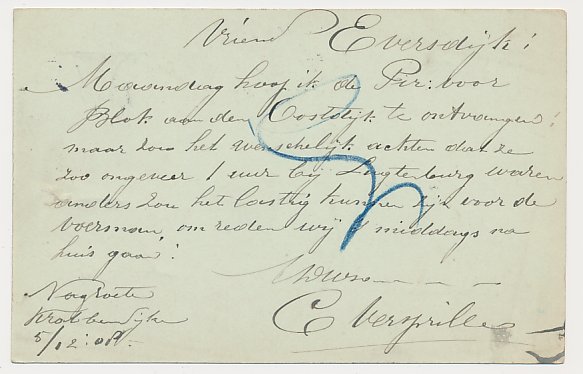 Vriend Eversdijk!
Maandag hoop ik de Pir: voor
Blok aan den Oostdijk te ontvangen!
maar zou het wenschelijk achten dat ze
zoo ongeveer 1 uur bij Luytenburg waren
anders zou het lastig kunnen zijn voor de
voerman, om reden wij 's middags na
huis gaan!
C Versprille
Krabbendijke
5/12:08.